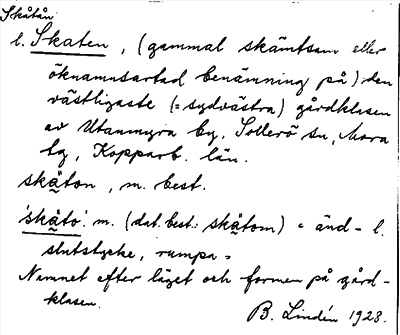 Skåtån
l. Skaten, (gammal skämtsam eller
öknamnsartad benämning på) den
västligaste (= sydvästra) gårdklasen
av Utanmyra by, Sollerö sn, Mora
tg, Kopparb. län.
skäton, m. best.
'skäto' m. (dat. best.: skätom) = änd- l.
slutstycke, rumpa =
Namnet efter läget och formen på gård-
klasen.
B. Lindén 1928.